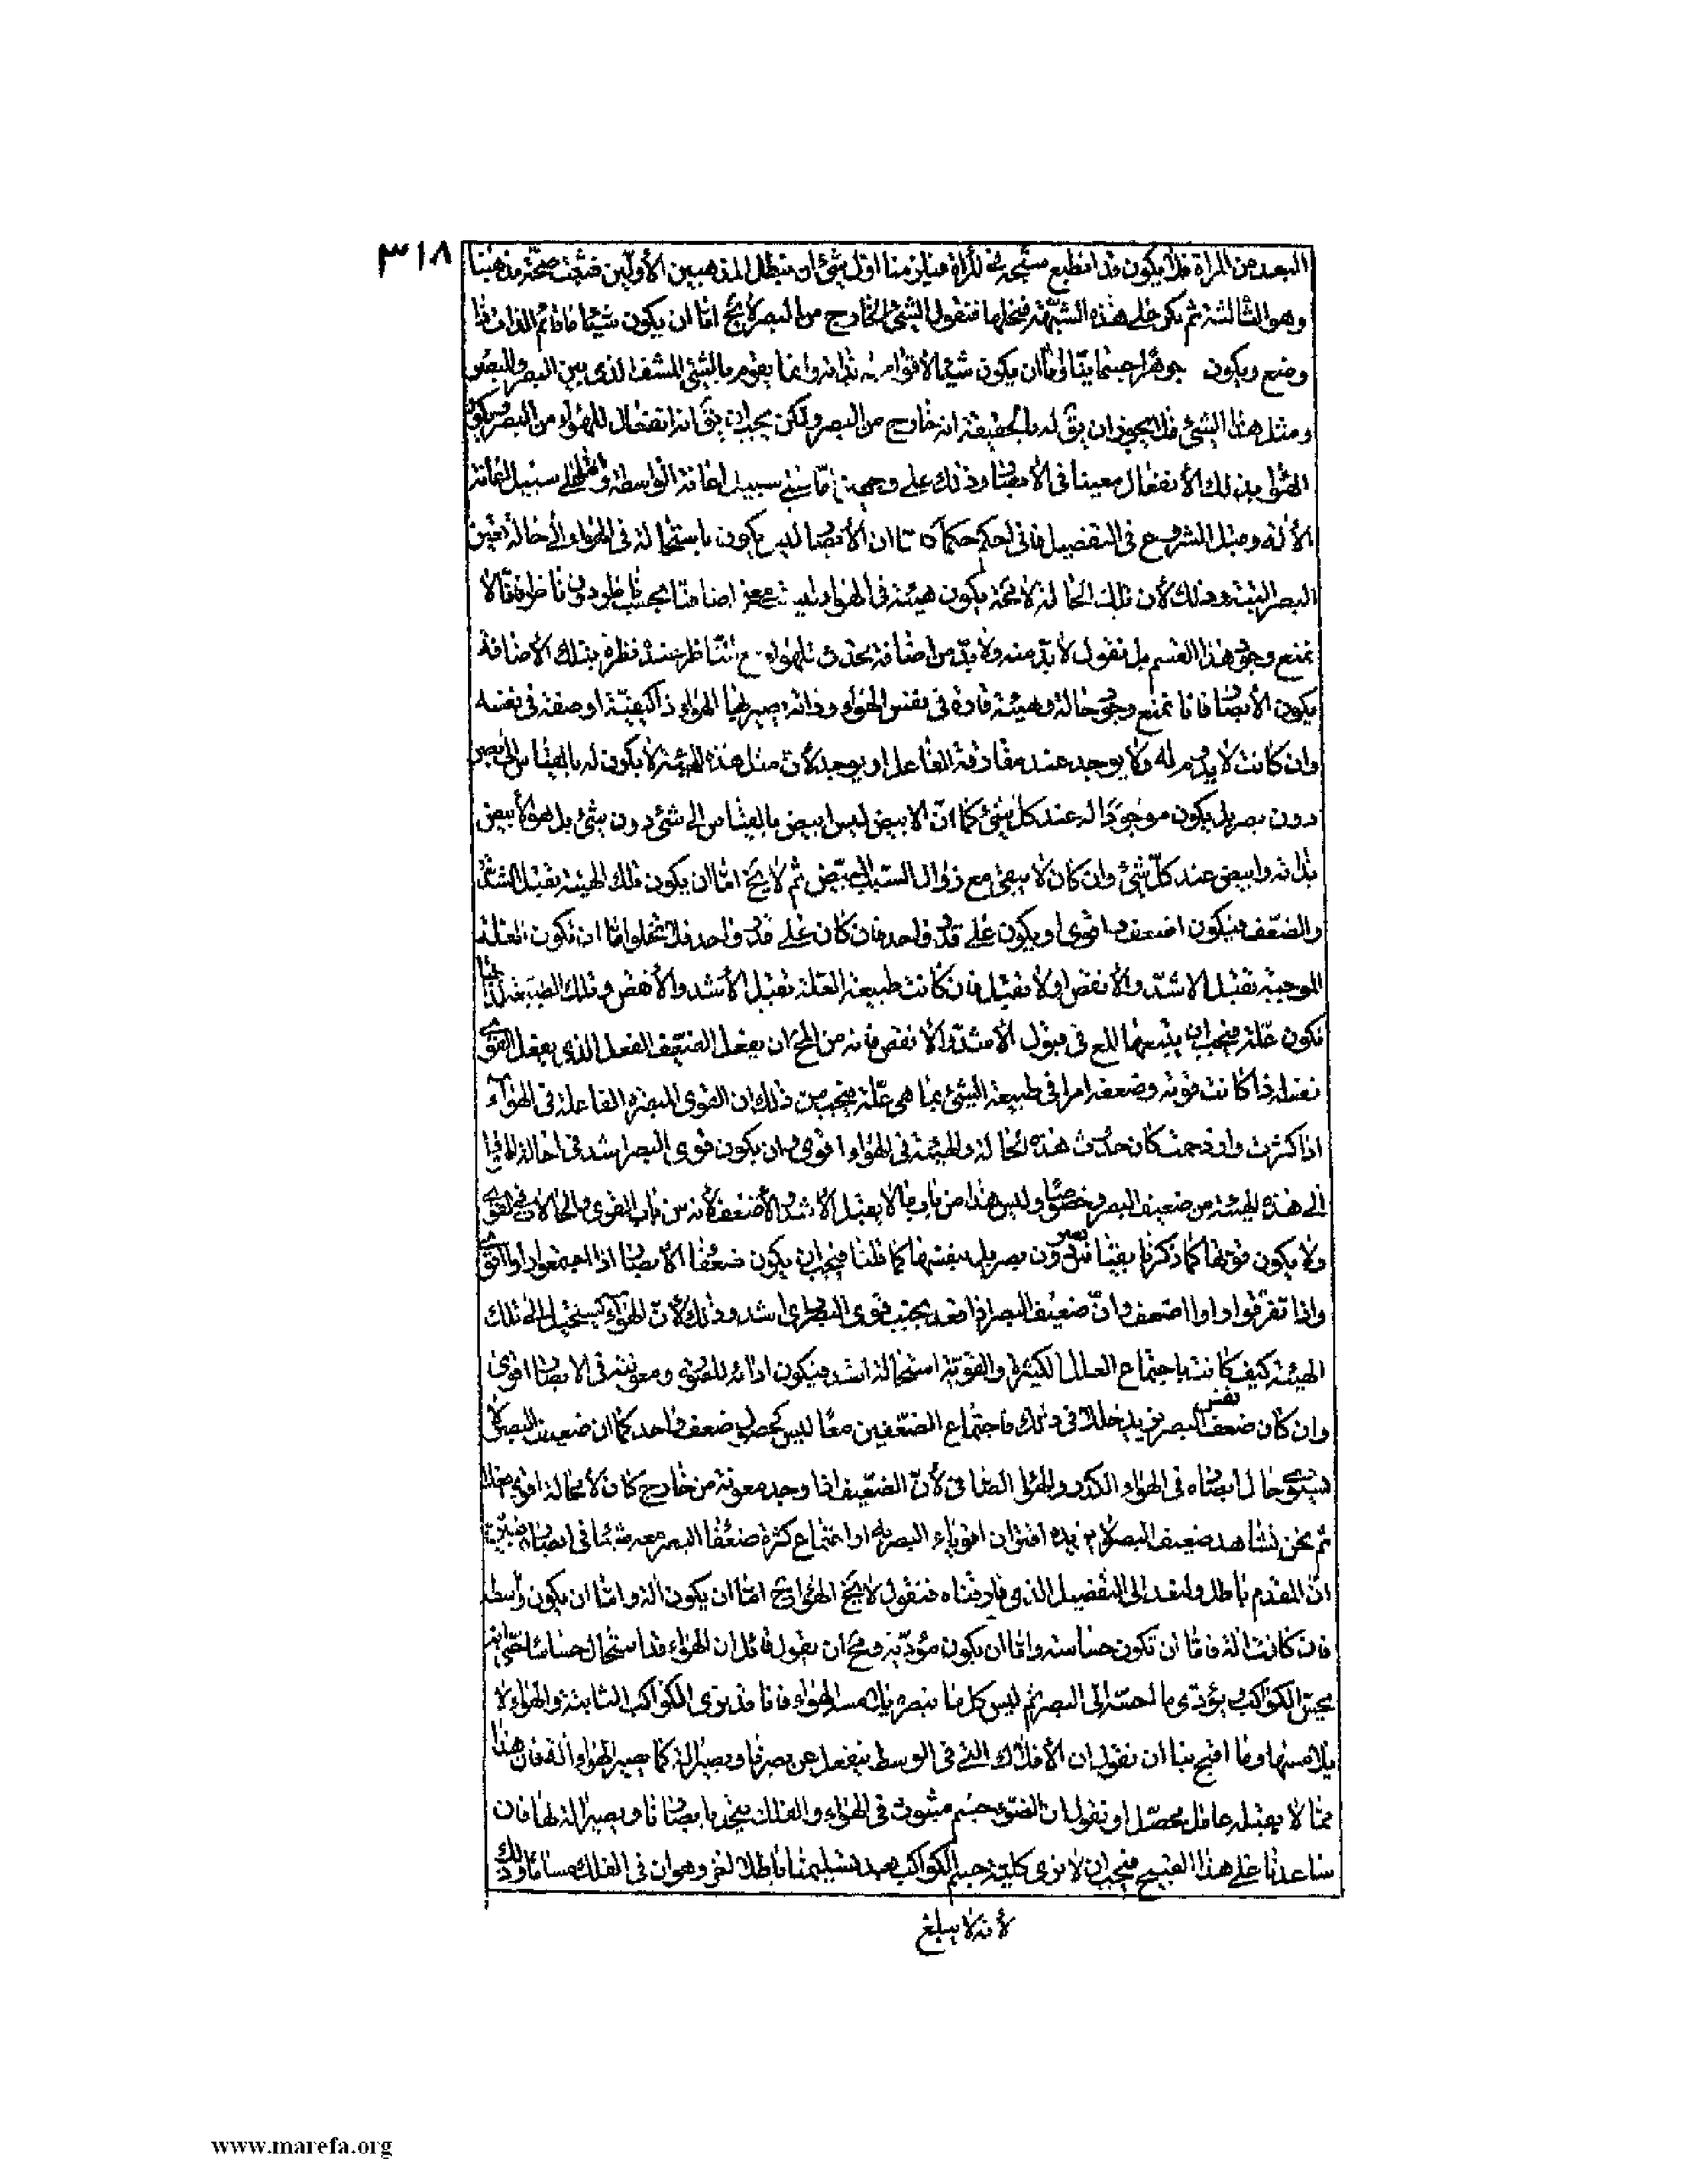 ٣١٨
البعد من المرآة فلا يكون قد انطبع شبحه في المرآة فيلزمنا اول شئ ان نبطل المذهبين الأولين فنثبت صحة مذهبنا
وهو الثالث ثم نكر على هذه الشبهة فنحلها فنقول الشئ الخارج من البصر لا يخ اما ان يكون شيئا ما قائم الذات ذا
وضع ويكون جوهرا جسمانيا واما ان يكون شيئا لا قوام له بذاته وانما يقوم بالشئ المشف الذى بين البصر والمبصر
ومثل هذا الشئ فلا يجوز ان يق له بالحقيقة انه خارج من البصر ولكن يجب ان يق انه انفعال للهواء من البصر ويكون
الهواء بذلك الأنفعال معينا فى الأبصار وذلك على وجهين اما على سبيل اعانة الواسطة واما على سبيل اعانة
الألة وقبل الشروع فى التفصيل فانى احكم حكما ان الأبصار ليس يكون باستحالة فى الهواء الى حالة تعين
البصر البتة وذلك لأن تلك الحالة لا محة يكون هيئة فى الهواء ليست معنى اضافيا بحسب ناظر دون ناظر فانا لا
نمنع وجود هذا القسم بل نقول لا بد منه ولا بد من اضافة يحدث للهواء مع الناظر عند نظره بتلك الأضافة
يكون الأبصار فانا نمنع وجود حالة وهيئة قارة فى نفس الهواء وذاته يصير بها الهواء ذا كيفية او صفة فى نفسه
وان كانت لا يدوم له ولا يوجد عند مفارقة الفاعل او يوجد لأن مثل هذه الهيئة لا يكون له بالقياس الى بصر
دون بصر بل يكون موجودا له عند كل شئ كما ان الابيض ليس ابيض بالقياس الى شئ دون شئ بل هو ابيض
بذاته وابيض عند كل شئ وان كان لا يبقى مع زوال السبب المبيض ثم لا يخ اما ان يكون تلك الهيئة تقبل الشدة
والضعف فيكون اضعف واقوى او يكون على قدر واحد فان كان على قدر واحد فلا تخلو اما ان تكون العلة
الموجبة تقبل الاشد والأنقص او لا تقبل فان كانت طبيعة العلة تقبل الأشد والأنقص وتلك الطبيعة لذاتها
تكون علة فيجب ان يتبعها المع فى قبول الأشد والأنقص فانه من المح ان يفعل الضعيف الفعل الذى يفعل القوى
نفسه اذا كانت قوته وضعفه امرا فى طبيعة الشئ بما هى علة فيجب من ذلك ان القوى المبصرة الفاعلة فى الهواء
اذا كثرت وازدحمت كان حدوث هذه الحالة والهيئة فى الهواء اقوى وان يكون قوى البصر اشد فى احالة الهواء
الى هذه الهيئة من ضعيف البصر وخصوصا وليس هذا من باب ما لا يقبل الأشد والأضعف لأنه من باب القوى والحالات فى القوى
ولا يكون قوتها كما ذكرنا بقياس بصر دون بصر بل بنفسها كما قلنا فيجب ان يكون ضعفاء الأبصار اذا اجتمعوا رأوا اقوى
واذا تفرقوا رأوا اضعف وان ضعيف البصر اذا قعد بجنب قوى البصر رأى اشد وذلك لأن الهواء يستحيل الى تلك
الهيئة كيف كانت باجتماع العلل الكثيرة والقوية استحالة اشد فيكون اداؤه للصورة ومعونته فى الابصار اقوى
وان كان ضعف نفس البصر يزيد خللا فى ذلك فاجتماع الضعفين معا ليس كحصول ضعف واحد كما ان ضعيف البصر لا
يستوى حال ابصاره فى الهواء الكدر والهواء الصافى لأن الضعيف اذا وجد معونة من خارج كان لا محالة اقوى فعلا
ثم نحن نشاهد ضعيف البصر لا يزيده اقتران اقوياء البصر به او اجتماع كثرة ضعفاء البصر معه شيئا فى ابصاره فبين
ان المقدم باطل ولنعد الى التفصيل الذى فارقناه فنقول لا يخ الهواء ح اما ان يكون آلة واما ان يكون واسطة
فان كانت آلة فاما ان تكون حساسة واما ان يكون مؤدية ومح ان يقول قائل ان الهواء قد استحال حساسا حتى انه
يحس الكواكب ويؤدى ما احسه الى البصر ثم ليس كل ما نبصره يلامسه الهواء فانا قد نرى الكواكب الثابتة والهواء لا
يلامسها وما اقبح بنا ان نقول ان الأفلاك التى فى الوسط ينفعل عن بصرنا ويصير آلة كما يصير الهواء آلة فان هذا
مما لا يقبله عاقل محصل او نقول ان الضوء جسم مبثوث فى الهواء والفلك يتحد بابصارنا ويصير آلة لها فان
ساعدنا على هذا القبيح فيجب ان لا نرى كلية جسم الكواكب بعد تسليمنا باطلا آخر وهو ان فى الفلك مسام وذلك
لأنه لا يبلغ
www.marefa.org